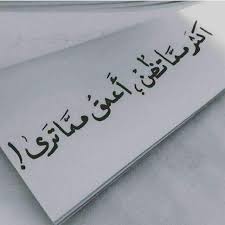 أكثر مما تظن، أعمق مما ترى!